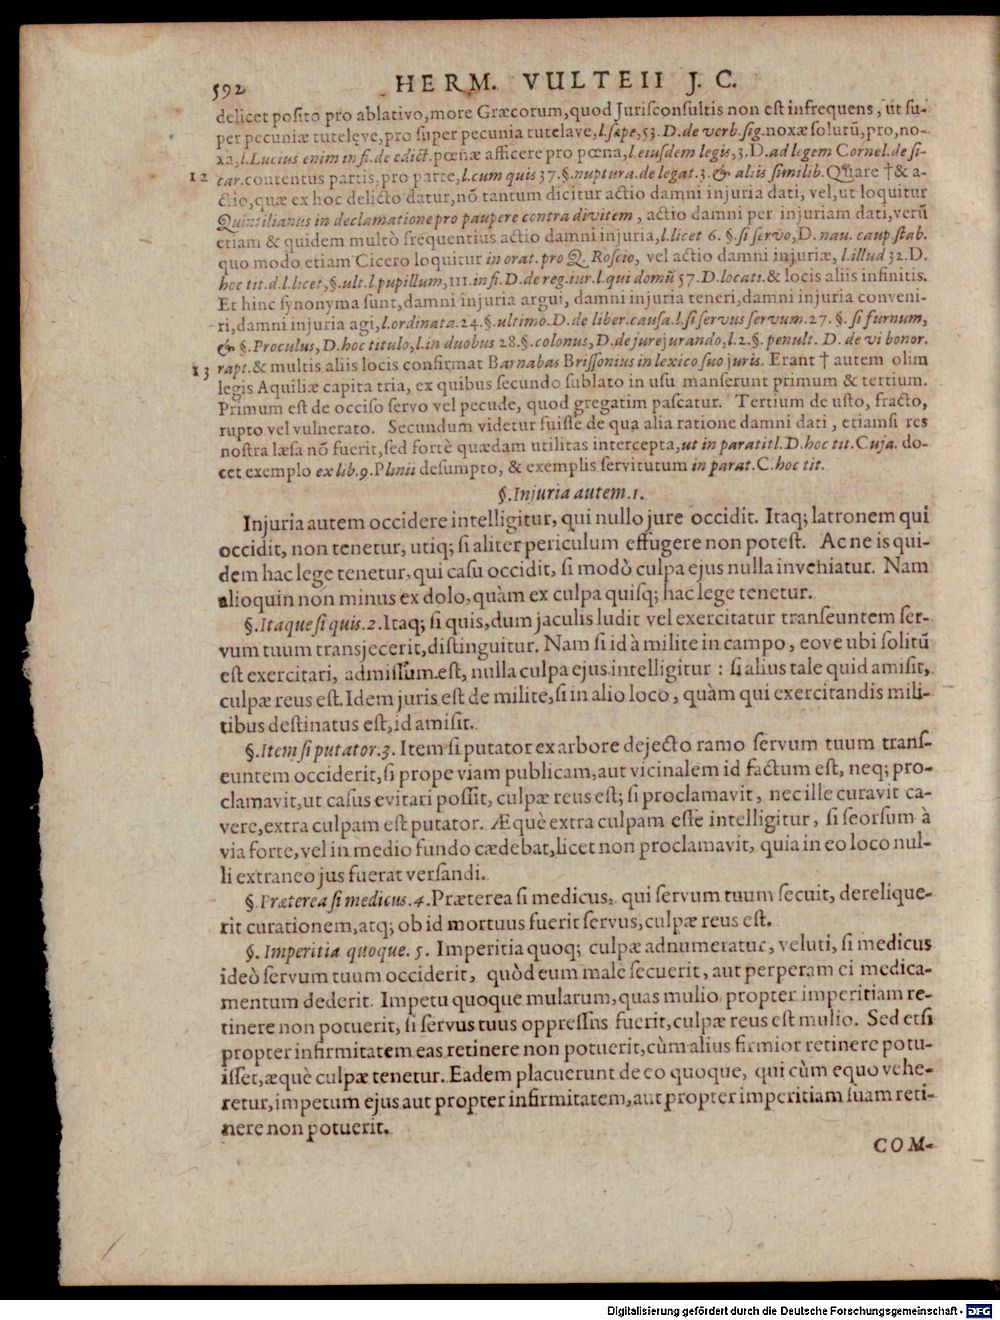 592 HERM. VULTEII J. C.
delicet posito pro ablativo, more Græcorum, quod Jurisconsultis non est infrequens, ut su-
per pecuniæ tutelęve, pro super pecunia tutelave, l. sæpe, 53. D. de verb. sig. noxæ solutũ, pro, no-
xa, l. Lucius enim in fi. de edict. pœnæ afficere pro pœna, l. eiusdem legis, 3. D. ad legem Cornel. de si-
12 car. contentus partis, pro parte, l. cum quis 37. §. nuptura. de legat. 3. & aliis similib. Quare † & a-
ctio, quæ ex hoc delicto datur, nõ tantum dicitur actio damni injuria dati, vel, ut loquitur
Quintilianus in declamatione pro paupere contra divitem, actio damni per injuriam dati, verũ
etiam & quidem multò frequentius actio damni injuria, l. licet 6. §. si servo, D. nau. caup. stab.
quo modo etiam Cicero loquitur in orat. pro Q. Roscio, vel actio damni injuriæ, l. illud 32. D.
hoc tit. d. l. licet, §. ult. l. pupillum, 111. in fi. D. de reg. iur. l. qui domũ 57. D. locati. & locis aliis infinitis.
Et hinc synonyma sunt, damni injuria argui, damni injuria teneri, damni injuria conveni-
ri, damni injuria agi, l. ordinata. 24. §. ultimo. D. de liber. causa. l. si servus servum. 27. §. si furnum,
& §. Proculus, D. hoc titulo, l. in duobus 28. §. colonus, D. de jurejurando, l. 2. §. penult. D. de vi bonor.
13 rapt. & multis aliis locis confirmat Barnabas Brissonius in lexico suo juris. Erant † autem olim
legis Aquiliæ capita tria, ex quibus secundo sublato in usu manserunt primum & tertium.
Primum est de occiso servo vel pecude, quod gregatim pascatur. Tertium de usto, fracto,
rupto vel vulnerato. Secundum videtur fuisse de qua alia ratione damni dati, etiamsi res
nostra læsa nõ fuerit, sed fortè quædam utilitas intercepta, ut in paratitl. D. hoc tit. Cuja. do-
cet exemplo ex lib. 9. Plinii desumpto, & exemplis servitutum in parat. C. hoc tit.
§. Injuria autem. 1.
Injuria autem occidere intelligitur, qui nullo jure occidit. Itaq; latronem qui
occidit, non tenetur, utiq; si aliter periculum effugere non potest. Ac ne is qui-
dem hac lege tenetur, qui casu occidit, si modò culpa ejus nulla inveniatur. Nam
alioquin non minus ex dolo, quàm ex culpa quisq; hac lege tenetur.
§. Itaque si quis. 2. Itaq; si quis, dum jaculis ludit vel exercitatur transeuntem ser-
vum tuum transjecerit, distinguitur. Nam si id à milite in campo, eove ubi solitũ
est exercitari, admissum est, nulla culpa ejus intelligitur: si alius tale quid amisit,
culpæ reus est. Idem juris est de milite, si in alio loco, quàm qui exercitandis mili-
tibus destinatus est, id amisit.
§. Item si putator. 3. Item si putator ex arbore dejecto ramo servum tuum trans-
euntem occiderit, si prope viam publicam, aut vicinalem id factum est, neq; pro-
clamavit, ut casus evitari possit, culpæ reus est; si proclamavit, nec ille curavit ca-
vere, extra culpam est putator. Æquè extra culpam esse intelligitur, si seorsum à
via forte, vel in medio fundo cædebat, licet non proclamavit, quia in eo loco nul-
li extraneo jus fuerat versandi.
§. Præterea si medicus. 4. Præterea si medicus, qui servum tuum secuit, derelique-
rit curationem, atq; ob id mortuus fuerit servus, culpæ reus est.
§. Imperitia quoque. 5. Imperitia quoq; culpæ adnumeratur, veluti, si medicus
ideò servum tuum occiderit, quòd eum malè secuerit, aut perperam ei medica-
mentum dederit. Impetu quoque mularum, quas mulio propter imperitiam re-
tinere non potuerit, si servus tuus oppressus fuerit, culpæ reus est mulio. Sed etsi
propter infirmitatem eas retinere non potuerit, cùm alius firmior retinere potu-
isset, æquè culpæ tenetur. Eadem placuerunt de eo quoque, qui cùm equo vehe-
retur, impetum ejus aut propter infirmitatem, aut propter imperitiam suam reti-
nere non potuerit.
COM-
Digitalisierung gefördert durch die Deutsche Forschungsgemeinschaft - DFG